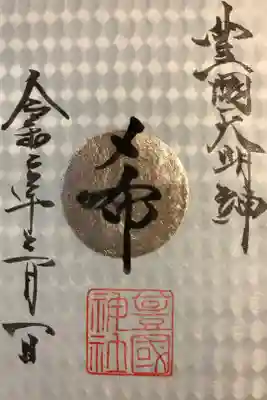 豊國大明神
希
令和二年七月一日
豊國
神社